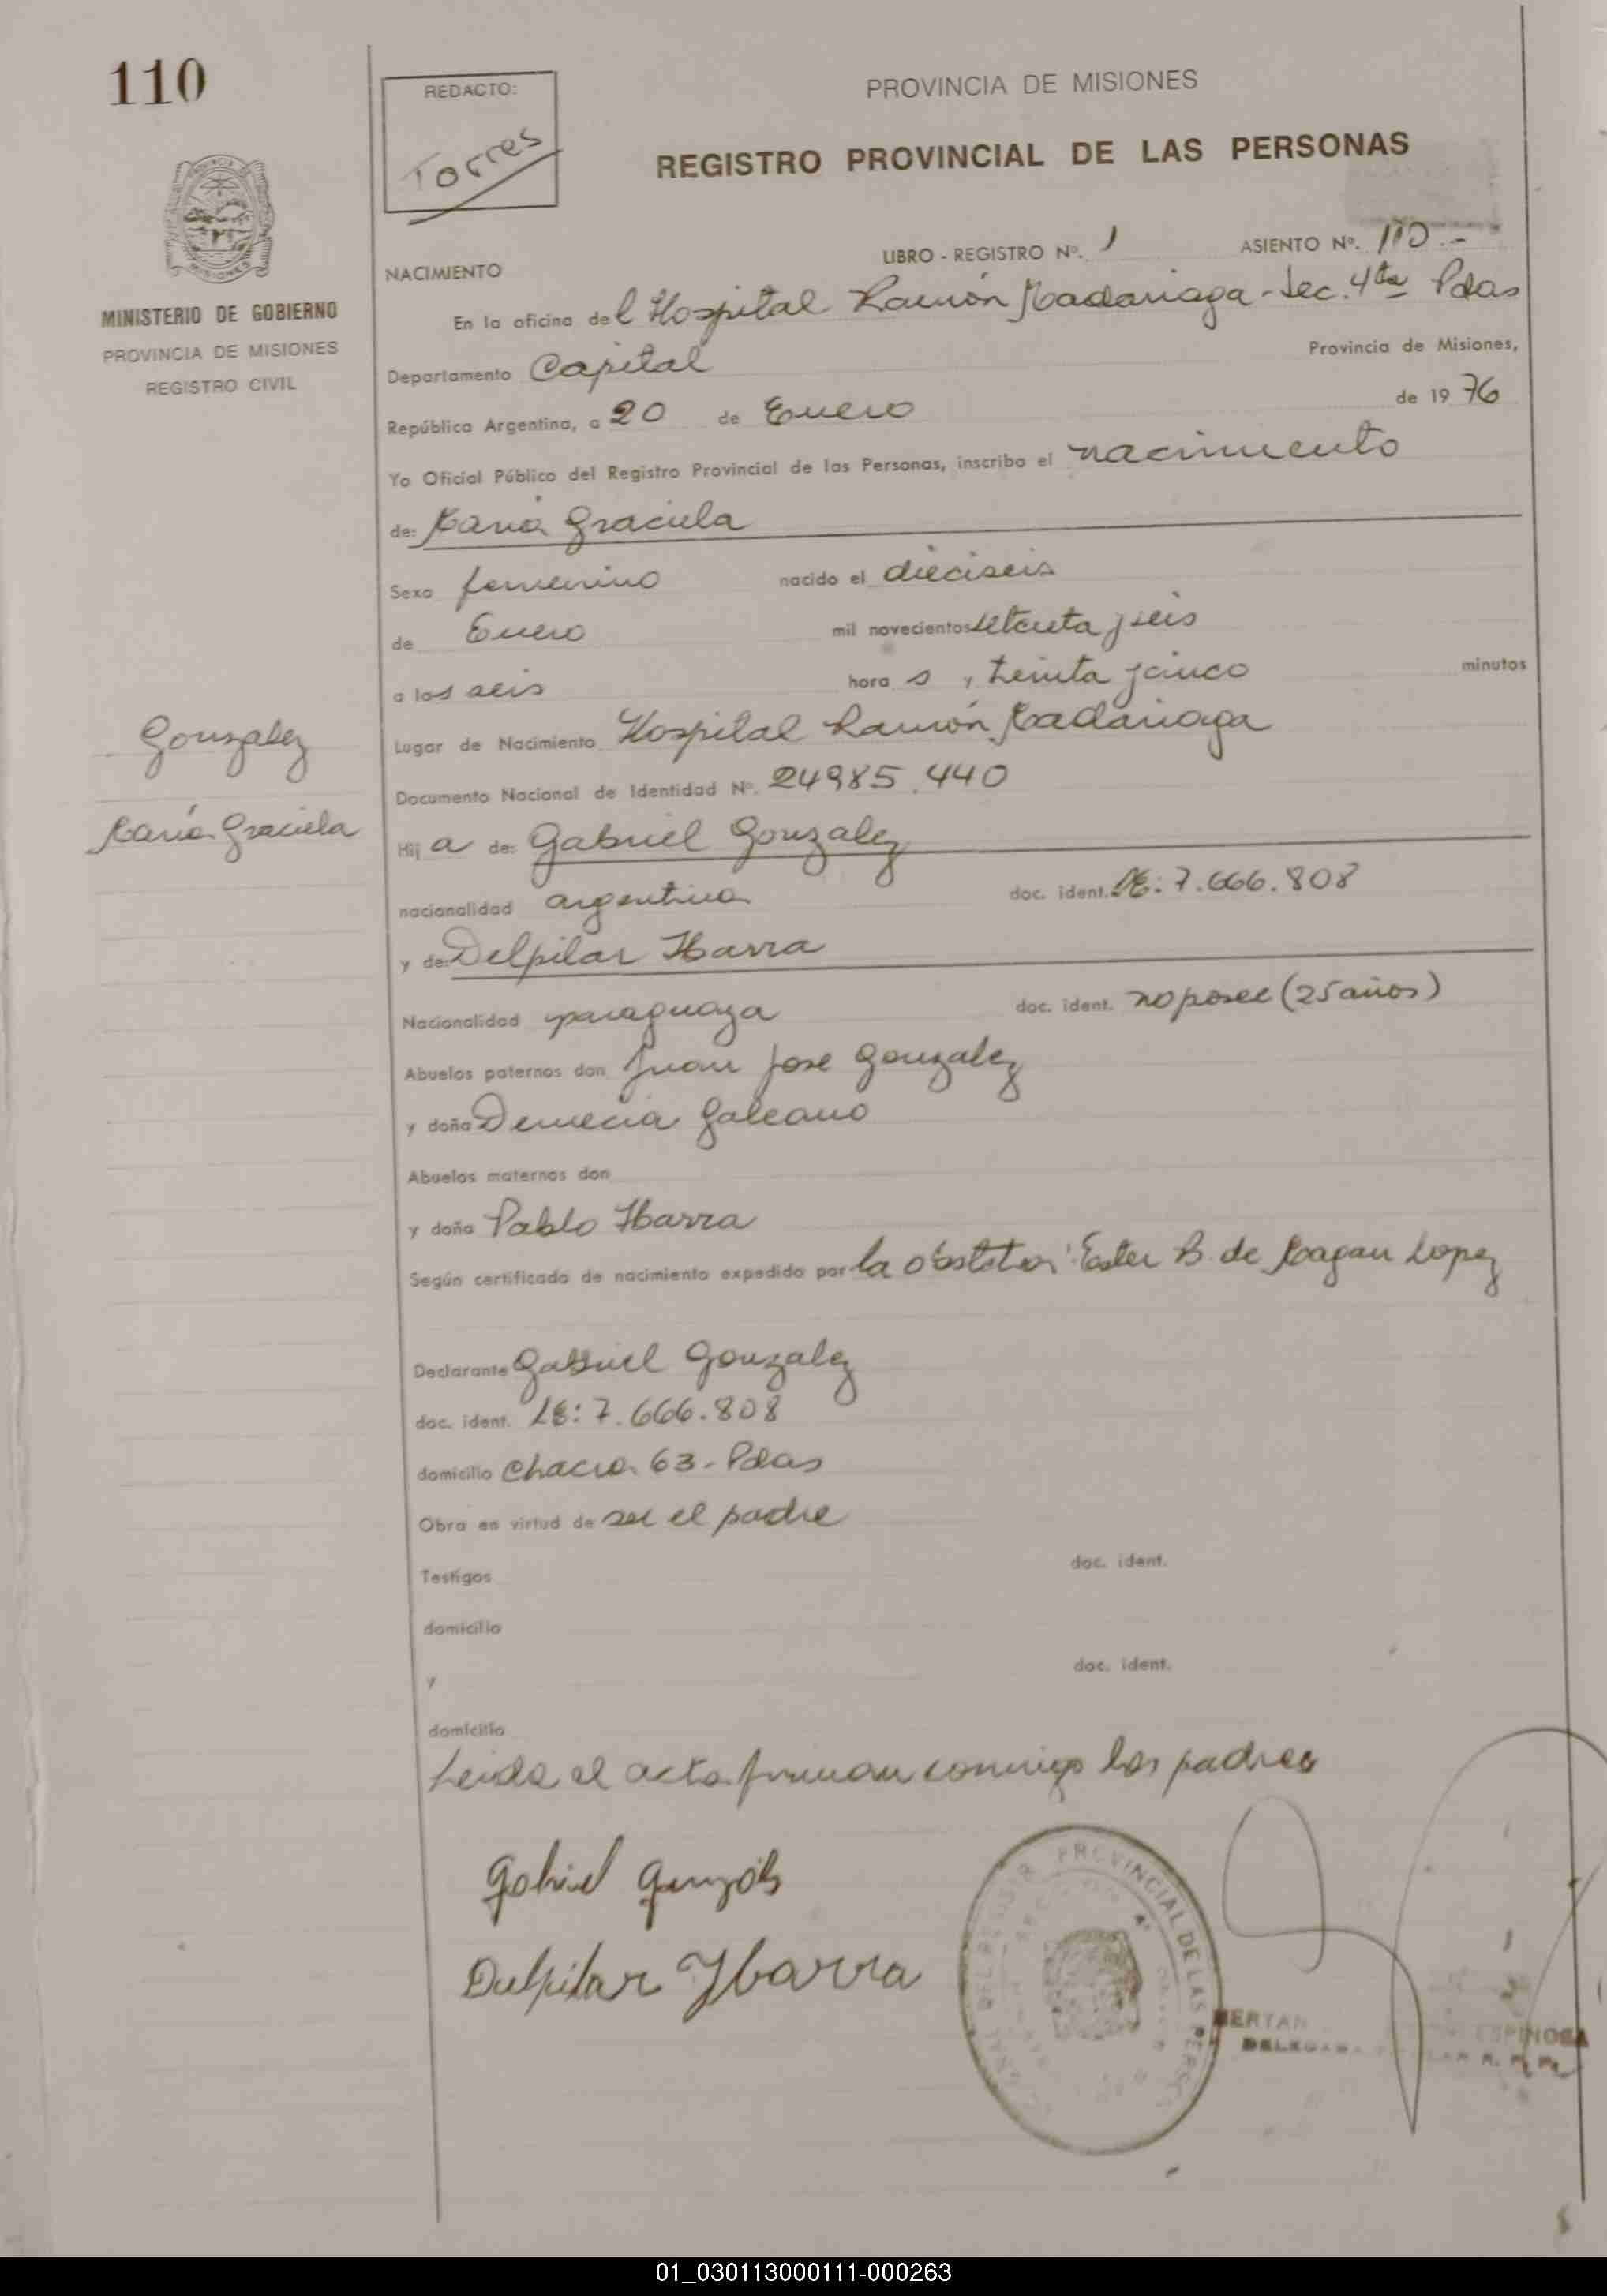 110
REDACTO:
Torres
PROVINCIA DE MISIONES
REGISTRO PROVINCIAL DE LAS PERSONAS
MINISTERIO DE GOBIERNO
PROVINCIA DE MISIONES
REGISTRO CIVIL
LIBRO - REGISTRO Nº. 1 ASIENTO Nº. 110.-
NACIMIENTO
En la oficina del Hospital Ramón Madariaga - Sec. 4ta Pdas
Departamento Capital Provincia de Misiones,
República Argentina, a 20 de Enero de 1976
Yo Oficial Público del Registro Provincial de las Personas, inscribo el nacimiento
de: Maria Graciela
Sexo femenino nacido el dieciseis
de Enero mil novecientos setenta y seis
a las seis hora s y treinta y cinco minutos
Lugar de Nacimiento Hospital Ramón Madariaga
Gonzalez
Maria Graciela
Documento Nacional de Identidad Nº. 24985.440
Hij a de: Gabriel Gonzalez
nacionalidad argentina doc. ident. LE: 7.666.808
y de: Delpilar Ibarra
Nacionalidad paraguaya doc. ident. no posee (25 años)
Abuelos paternos don Juan Jose Gonzalez
y doña Demecia Galeano
Abuelos maternos don
y doña Pablo Ibarra
Según certificado de nacimiento expedido por la Ester B. de Lopez
Declarante Gabriel Gonzalez
doc. ident. LE: 7.666.808
domicilio Chacra 63 - Pdas
Obra en virtud de ser el padre
Testigos doc. ident.
domicilio
y doc. ident.
domicilio
Leida el acta firman conmigo los padres
Gabriel Gonzáles
Delpilar Ybarra
PROVINCIAL DE LAS
ESPINOSA
01_030113000111-000263